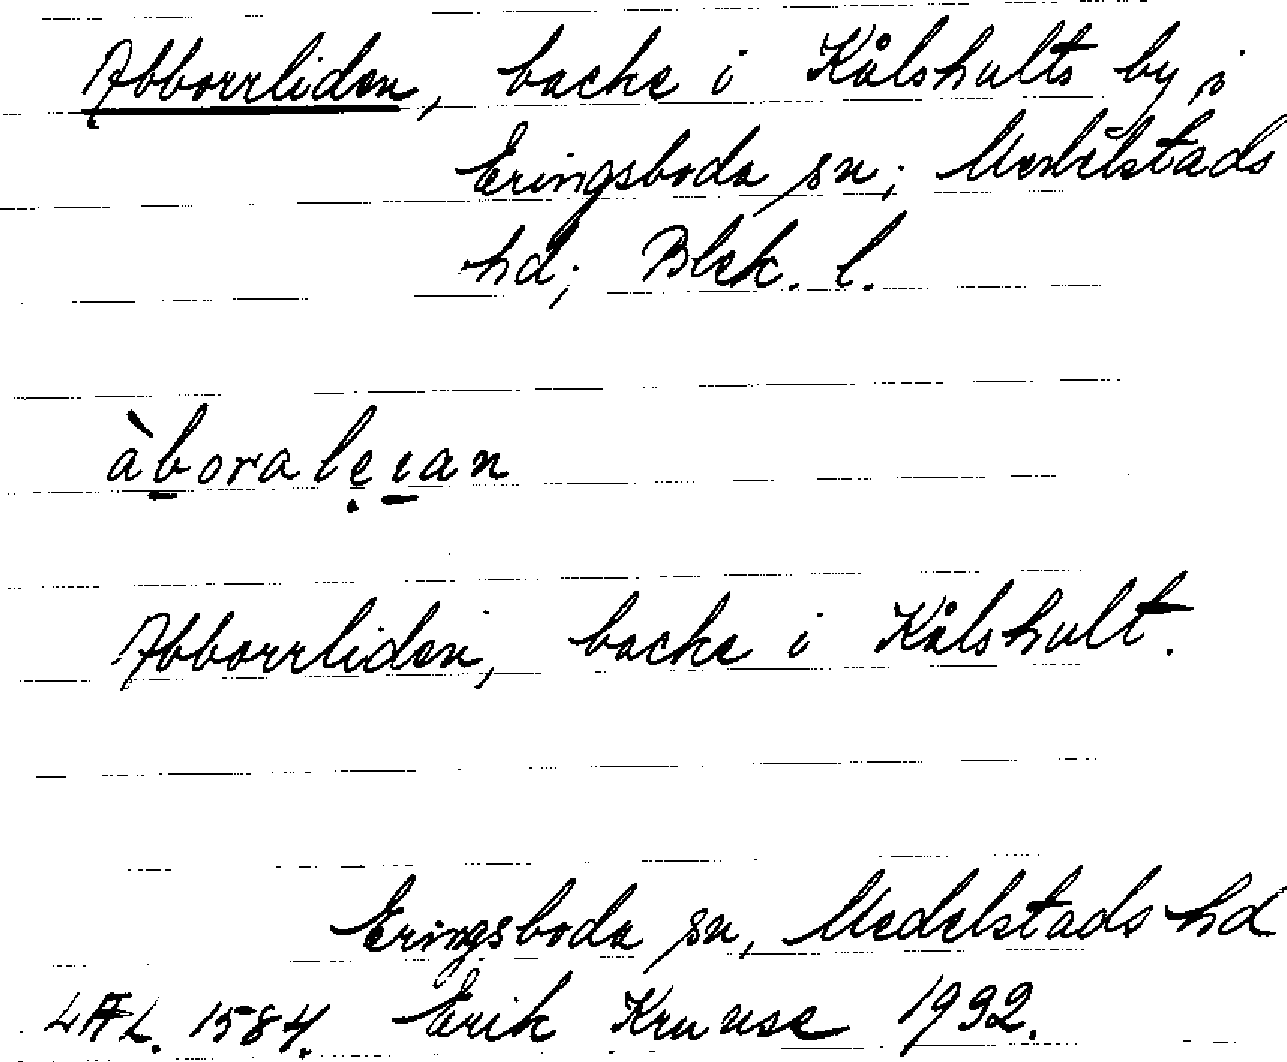 Abborrliden, backe i Kålshults by i
Eringsboda sn; Medelstads
hd; Blek. l.
àboralẹıan
Abborrliden, backe i Kålshult.
Eringsboda sn, Medelstads hd
LAL. 1584. Erik Kruuse 1932.